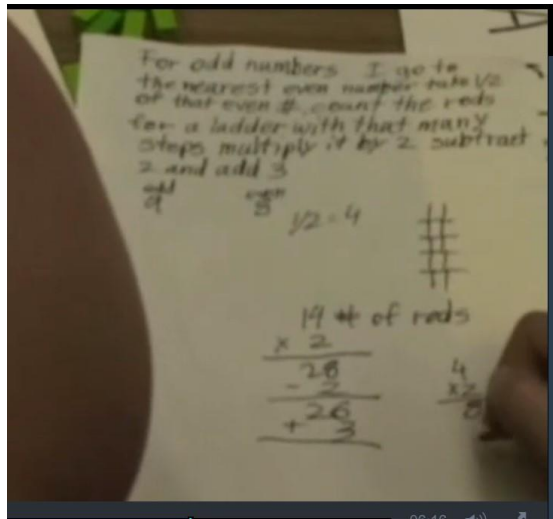 For odd numbers I go to
the nearest even number take 1/2
of that even #, count the rods
for a ladder with that many
steps multiply it by 2 subtract
2 and add 3
odd even
9 8
1/2 = 4
14 # of rods
x 2
28
- 2
26
+ 3
4
x2
8